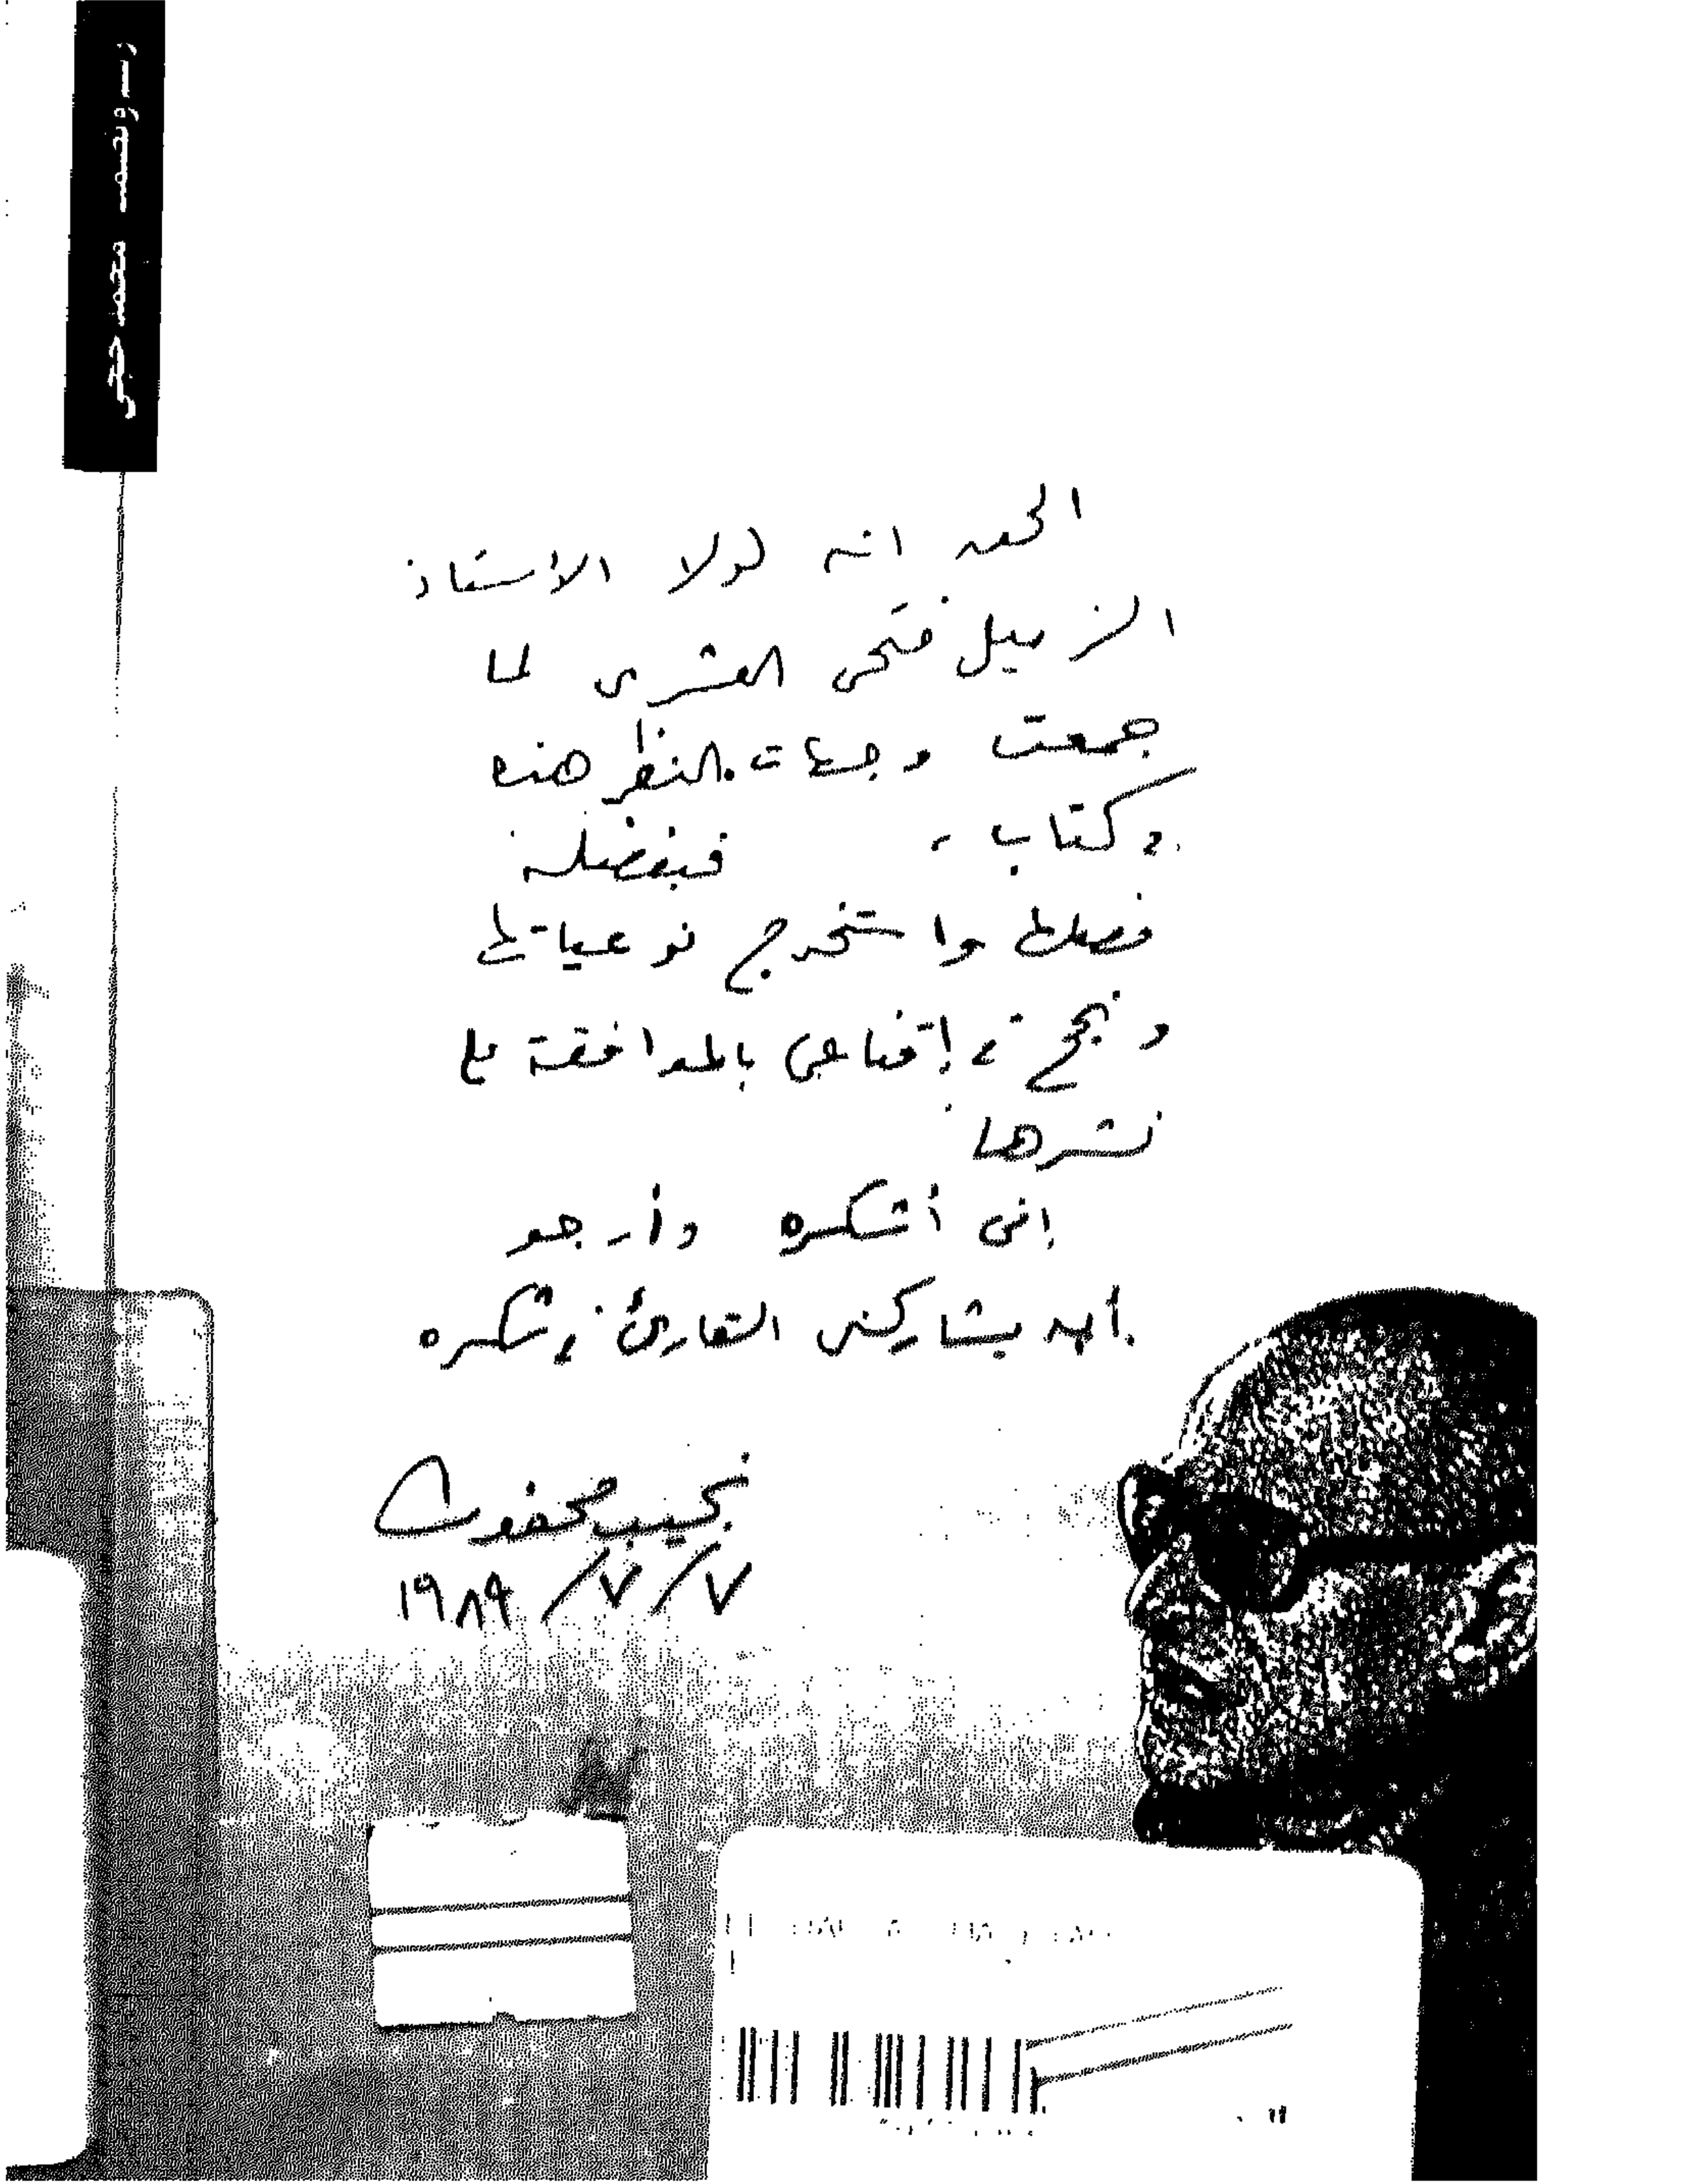 رسوم نصم محمد حجى
الحق انه لولا الأستاذ
الزميل فتحى العشرى لما
جمعت وجهات النظر هذه
فى كتاب، فبفضله
فصلها واستخرج نوعياتها
ونجح فى إقناعى بالموافقة على
نشرها
إنى أشكره وأرجو
أن يشاركنى القارئ فى شكره
نجيب محفوظ
٧/٧/١٩٨٩